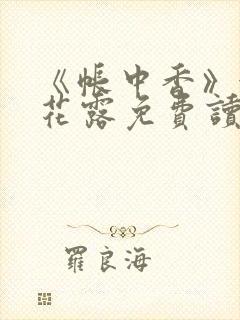 《帳中香》
花露免費讀
羅良海